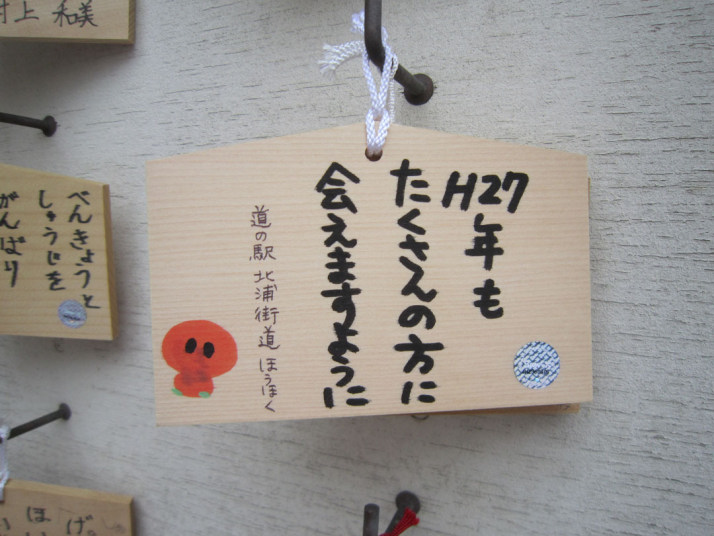 H27年も
たくさんの方に
会えますように
道の駅 北浦街道 ほうほく
村上 和美
べんきょうと
しゅうじを
がんばり